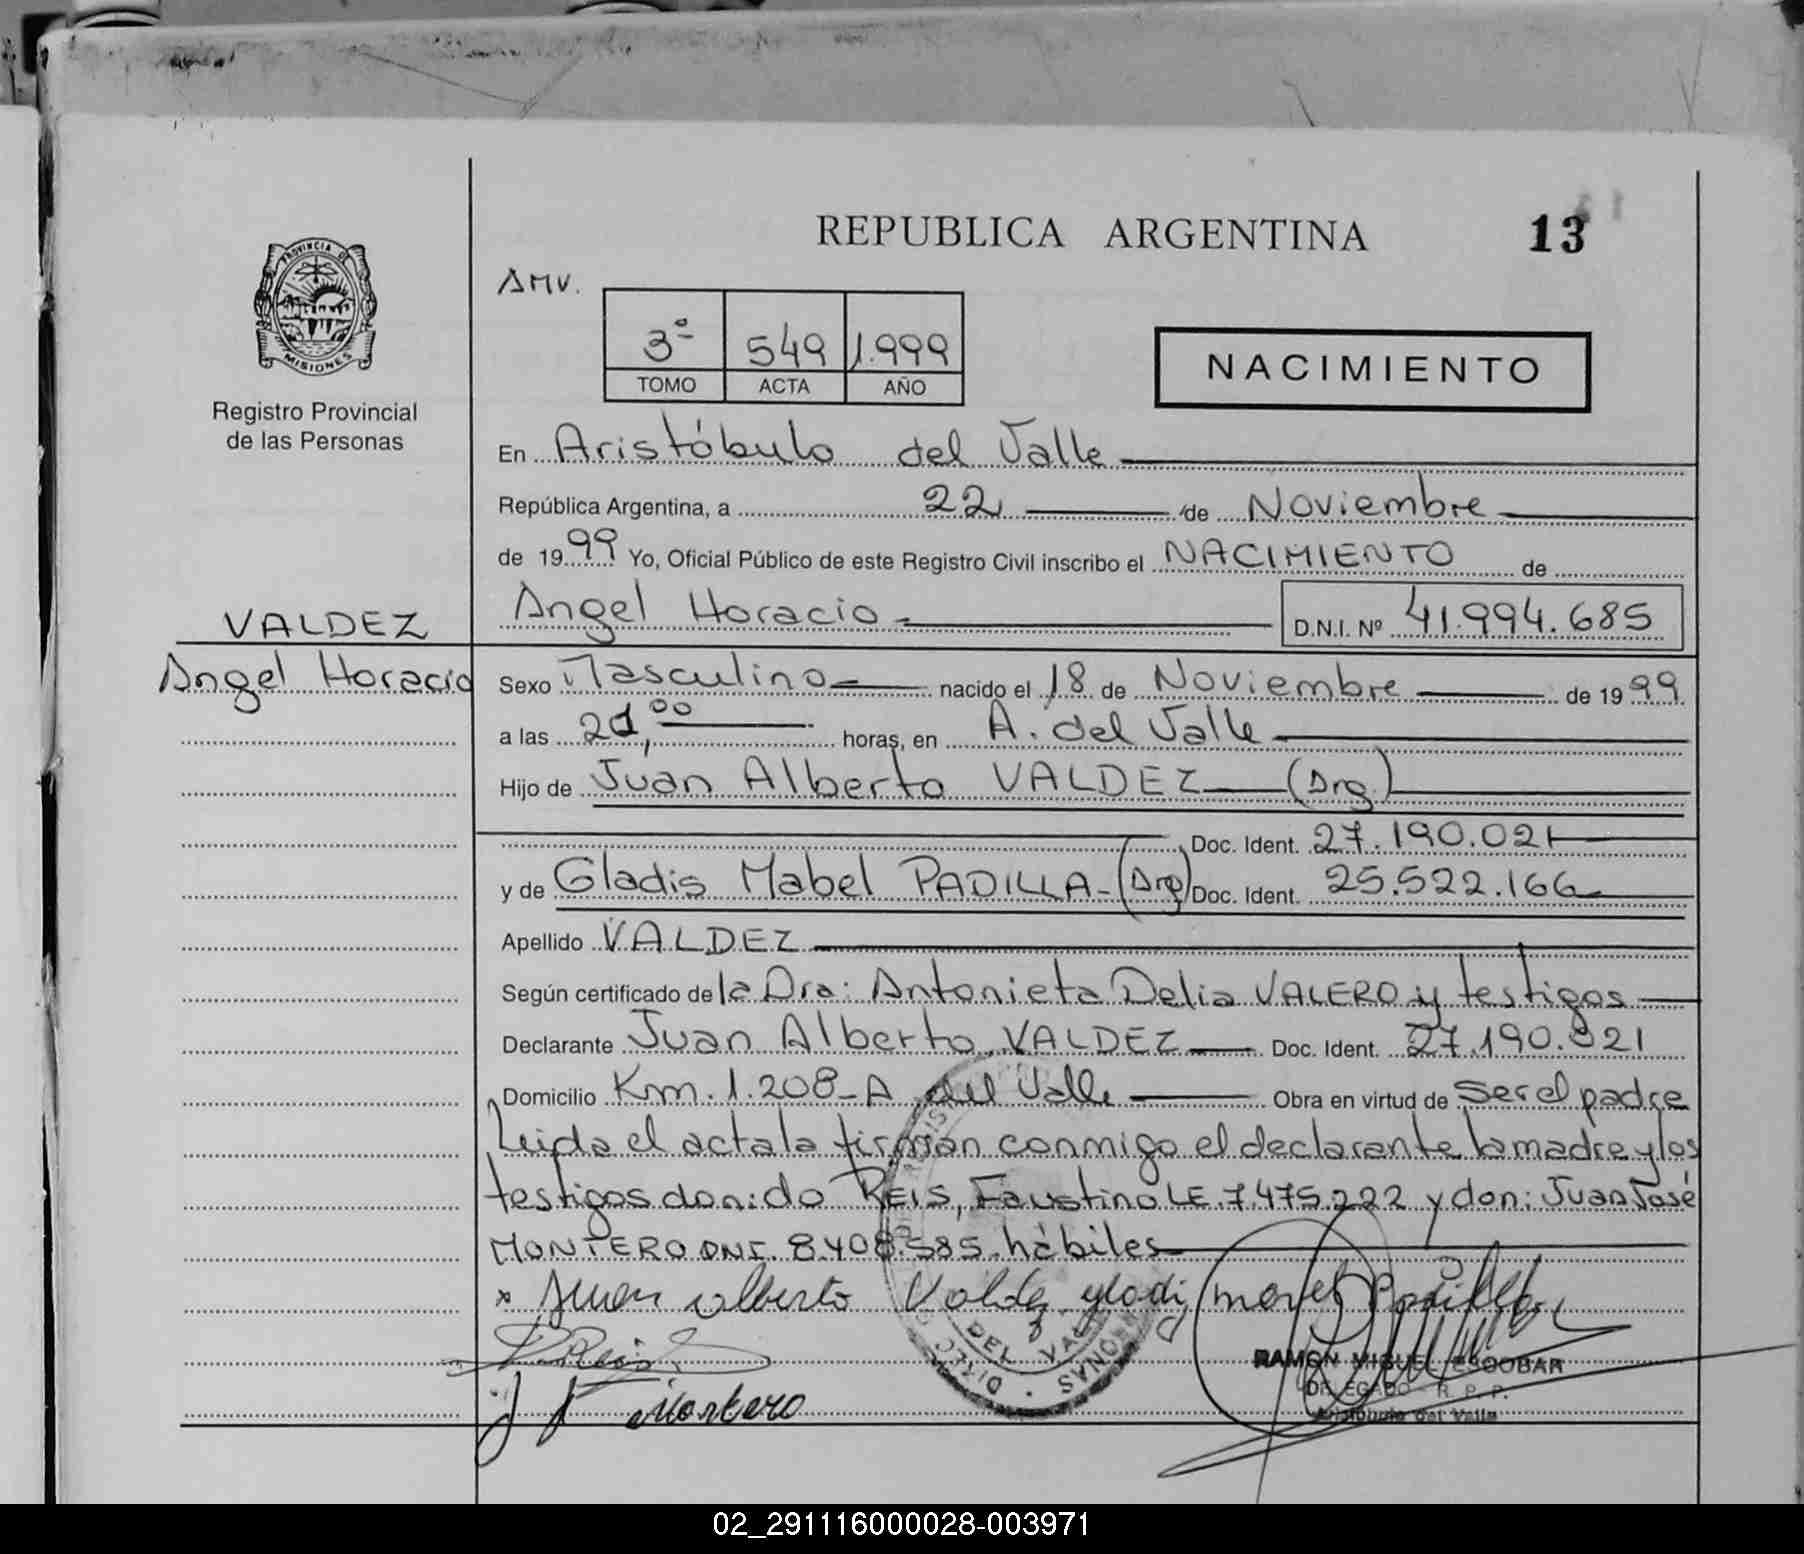 REPUBLICA ARGENTINA
13
PROVINCIA DE
MISIONES
Registro Provincial
de las Personas
AMV.
3º 549 1.999
TOMO ACTA AÑO
NACIMIENTO
En Aristóbulo del Valle
República Argentina, a 22 de Noviembre
de 19 99 Yo, Oficial Público de este Registro Civil inscribo el NACIMIENTO de
VALDEZ
Angel Horacio D.N.I. Nº 41.994.685
Angel Horacio
Sexo Masculino nacido el 18 de Noviembre de 19 99
a las 21,00 horas, en A. del Valle
Hijo de Juan Alberto VALDEZ (Arg.)
Doc. Ident. 27.190.021
y de Gladis Mabel PADILLA - (Arg) Doc. Ident. 25.522.166
Apellido VALDEZ
Según certificado de la Dra: Antonieta Delia VALERO y testigos
Declarante Juan Alberto VALDEZ Doc. Ident. 27.190.021
Domicilio Km. 1.208 - A del Valle Obra en virtud de ser el padre
Leida el acta la firman conmigo el declarante la madre y los
testigos don: do REIS, Faustino LE 7.475.222 y don: Juan José
MONTERO DNI. 8.408.585. hábiles
x Juan alberto Valdez
P. Reis
J J Montero
DEL VALLE
RAMON MIGUEL ESCOBAR
DELEGADO - R. P. P.
Aristóbulo del Valle
02_291116000028-003971